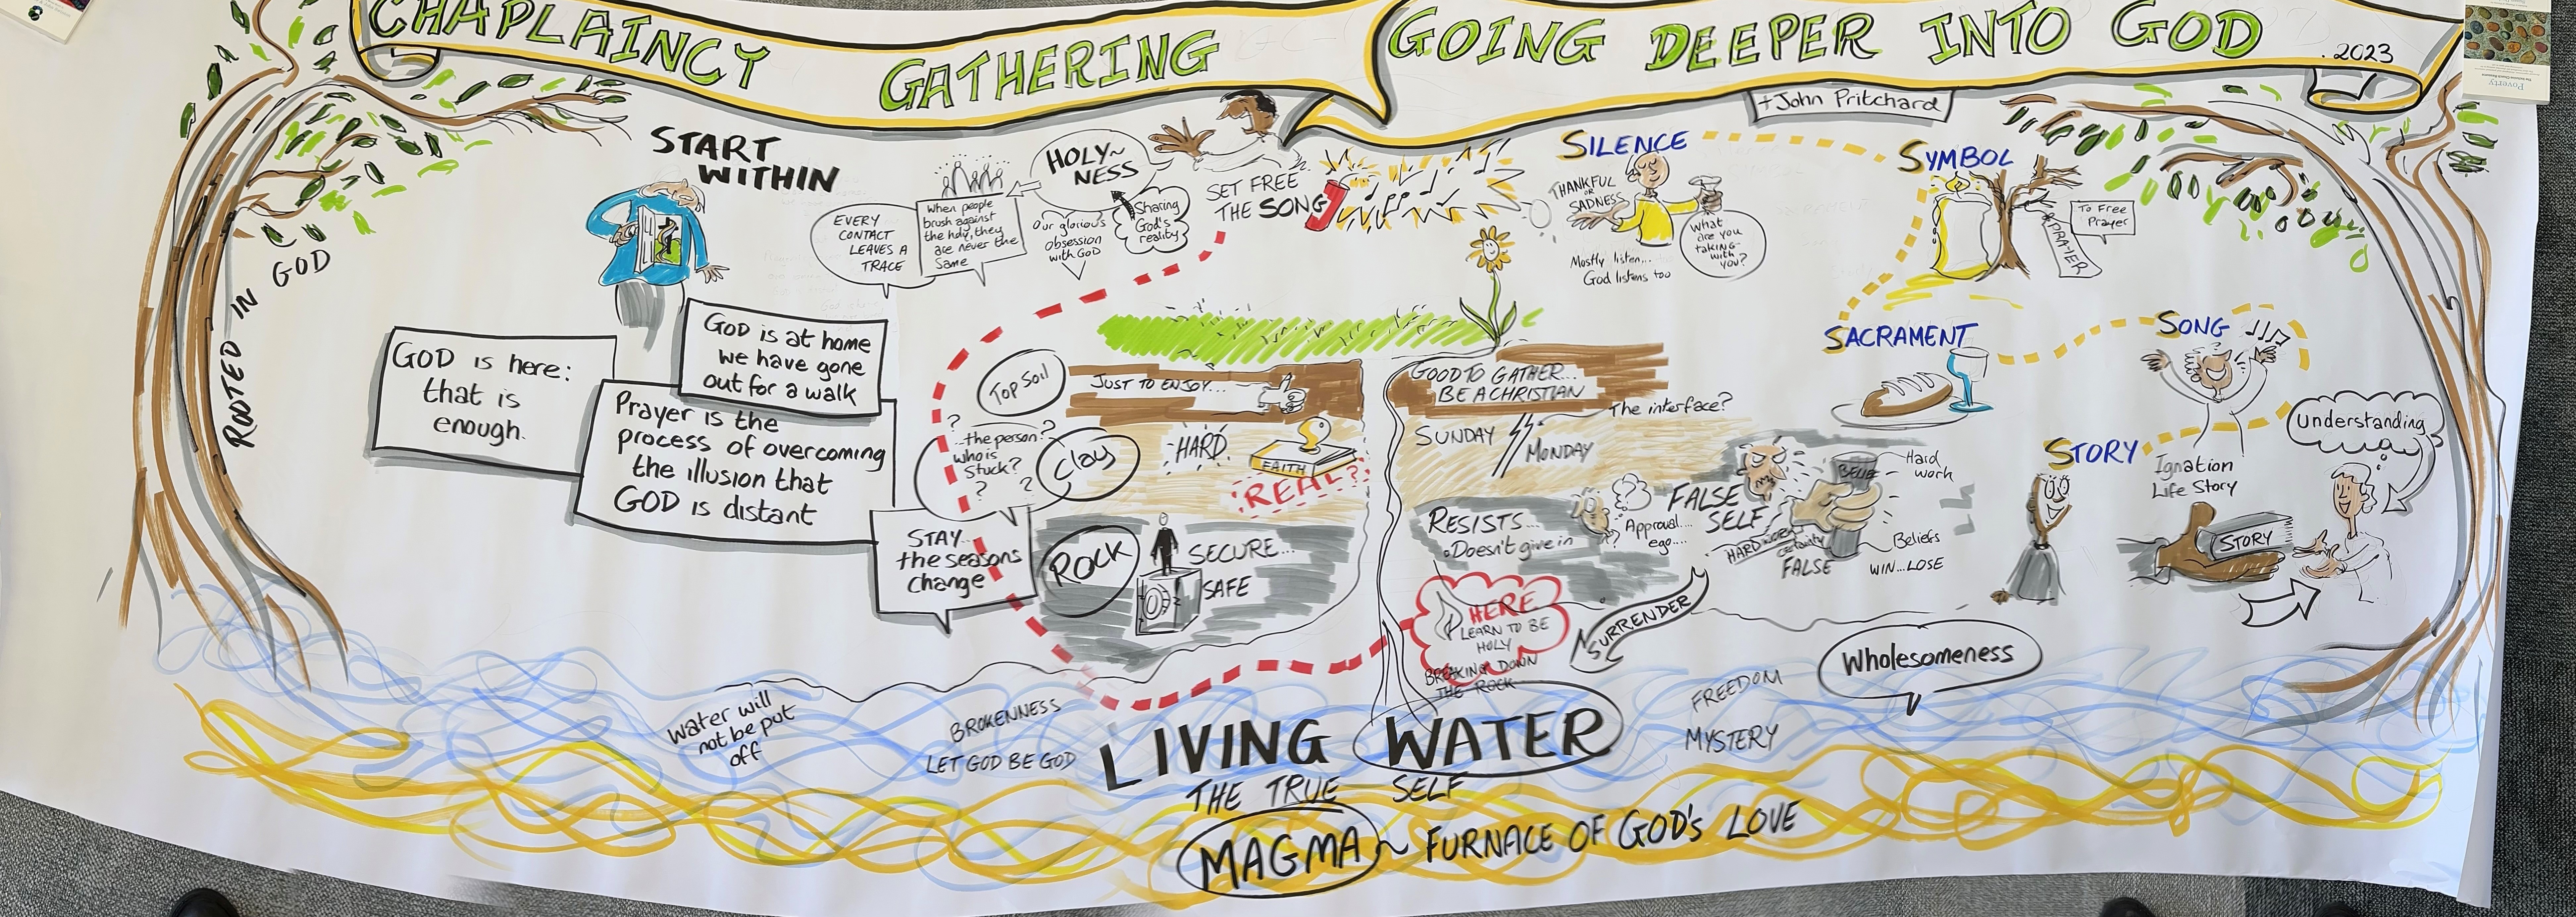 CHAPLAINCY GATHERING
GOING DEEPER INTO GOD
. 2023
+John Pritchard
ROOTED IN GOD
START
WITHIN
GOD is here:
that is
enough.
GOD is at home
we have gone
out for a walk
Prayer is the
process of overcoming
the illusion that
GOD is distant
STAY...
the seasons
change
EVERY
CONTACT
LEAVES A
TRACE
When people
brush against
the holy, they
are never the
same
HOLY~
NESS
Our glorious
obsession
with GOD
Sharing
God's
reality
SET FREE
THE SONG
SILENCE
THANKFUL
OR
SADNESS
What
are you
taking
with
you?
Mostly listen...
God listens too
SYMBOL
PRAYER
To Free
Prayer
SACRAMENT
SONG
STORY
Ignation
Life Story
Understanding
STORY
Top Soil
JUST TO ENJOY...
? the person?
who is
stuck?
? ?
Clay
HARD
FAITH
REAL?
ROCK
SECURE...
SAFE
GOOD TO GATHER...
BE A CHRISTIAN
The interface?
SUNDAY
MONDAY
RESISTS...
Doesn't give in
Approval....
ego....
FALSE
SELF
HARD WORK
certainty
FALSE
BELIEF
Hard
work
Beliefs
WIN...LOSE
HERE
LEARN TO BE
HOLY
BREAKING DOWN
THE ROCK
SURRENDER
Wholesomeness
FREEDOM
MYSTERY
Water will
not be put
off
BROKENNESS
LET GOD BE GOD
LIVING WATER
THE TRUE SELF
MAGMA ~ FURNACE OF GOD's LOVE
Poverty